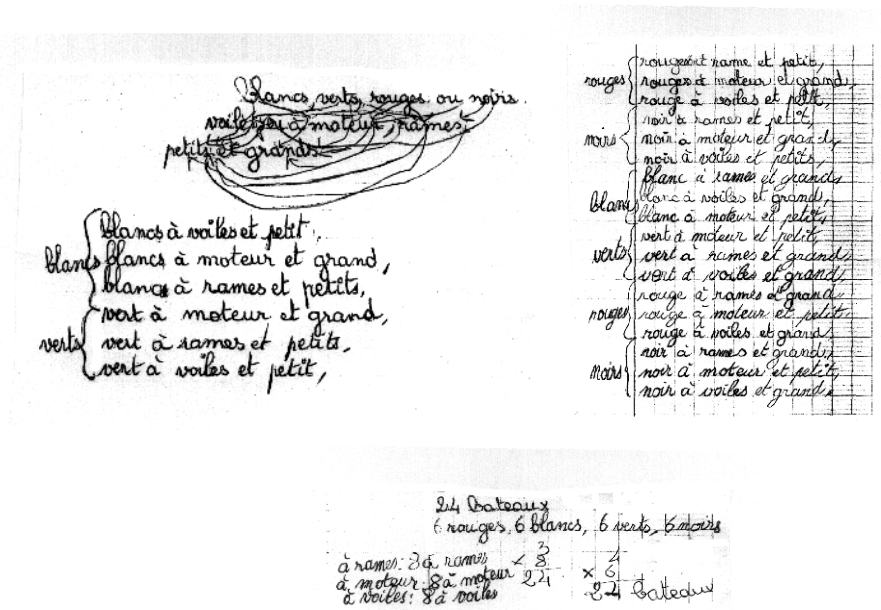 blancs, verts, rouges ou noirs.
voiles ou à moteur, rames.
petits et grands.
blancs
blancs à voiles et petit,
blancs à moteur et grand,
blancs à rames et petits,
verts
vert à moteur et grand,
vert à rames et petits,
vert à voiles et petit,
rouges
rouges à rame et petit,
rouges à moteur et grand,
rouge à voiles et petit,
noirs
noir à rames et petit,
noir à moteur et grand,
noir à voiles et petits,
blancs
blanc à rames et grands,
blanc à voiles et grand,
blanc à moteur et petits,
verts
vert à moteur et petit,
vert à rames et grand,
vert à voiles et grand,
rouges
rouge à rames et grand,
rouge à moteur et petit.
rouge à voiles et grand,
noirs
noir à rames et grand,
noir à moteur et petit,
noir à voiles et grand.
24 bateaux
6 rouges, 6 blancs, 6 verts, 6 noirs
à rames: 8 à rames
à moteur: 8 à moteur
à voiles: 8 à voiles
3
× 8
24
4
× 6
24 bateaux